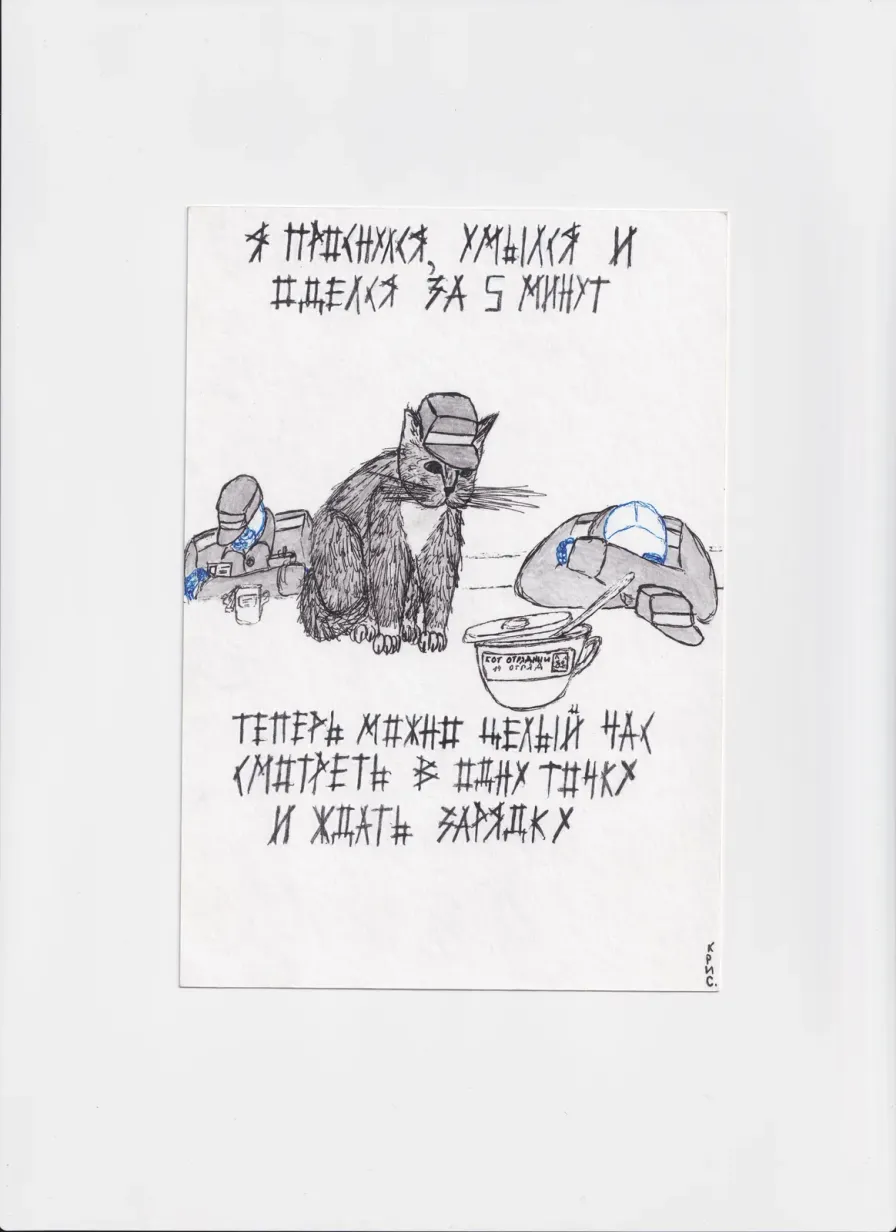 Я ПРОСНУЛСЯ, УМЫЛСЯ И
ОДЕЛСЯ ЗА 5 МИНУТ
КОТ ОТРЯДНЫЙ
ОТРЯД
ТЕПЕРЬ МОЖНО ЦЕЛЫЙ ЧАС
СМОТРЕТЬ В ОДНУ ТОЧКУ
И ЖДАТЬ ЗАРЯДКУ
КРИС.